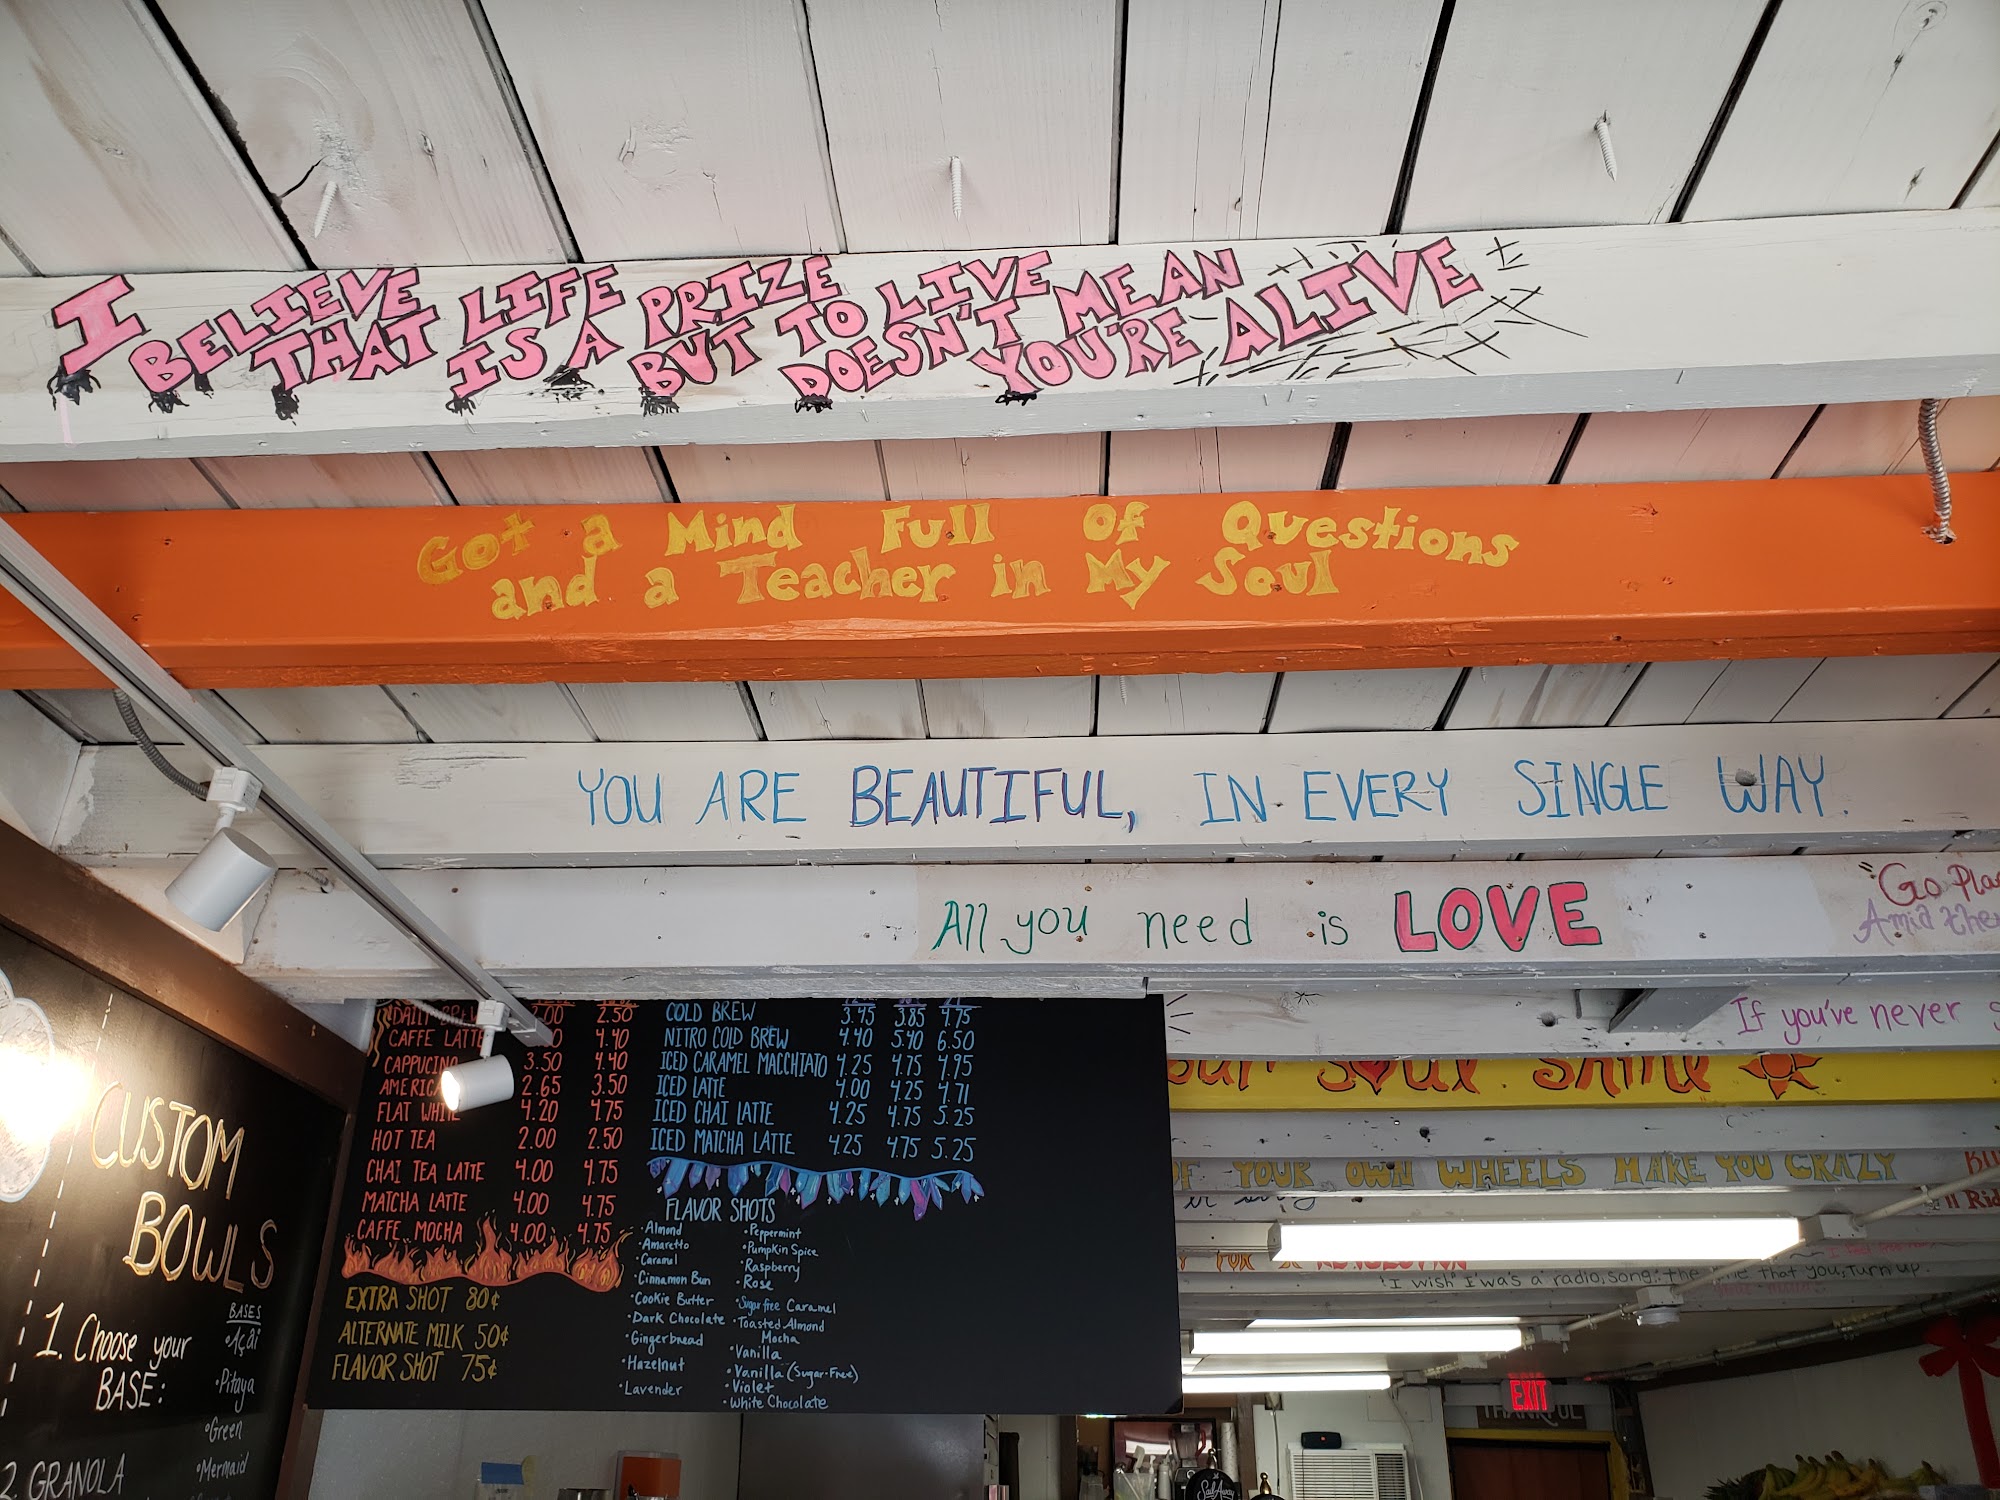 I BELIEVE THAT LIFE IS A PRIZE BUT TO LIVE DOESN'T MEAN YOU'RE ALIVE
Got a Mind Full of Questions
and a Teacher in My Soul
YOU ARE BEAUTIFUL, IN EVERY SINGLE WAY.
All you need is LOVE
"Go Pla
Amid the
If you've never
Soul Shine
OF YOUR OWN WHEELS MAKE YOU CRAZY
I wish I was a radio song: the one that you turn up.
DAILY BREW 2.00 2.50
CAFFE LATTE 4.40
CAPPUCINO 3.50 4.40
AMERICA 2.65 3.50
FLAT WHITE 4.20 4.75
HOT TEA 2.00 2.50
CHAI TEA LATTE 4.00 4.75
MATCHA LATTE 4.00 4.75
CAFFE MOCHA 4.00 4.75
EXTRA SHOT 80¢
ALTERNATE MILK 50¢
FLAVOR SHOT 75¢
COLD BREW 3.45 3.85 4.75
NITRO COLD BREW 4.40 5.40 6.50
ICED CARAMEL MACCHIATO 4.25 4.75 4.95
ICED LATTE 4.00 4.25 4.71
ICED CHAI LATTE 4.25 4.75 5.25
ICED MATCHA LATTE 4.25 4.75 5.25
FLAVOR SHOTS
•Almond
•Amaretto
•Caramel
•Cinnamon Bun
•Cookie Butter
•Dark Chocolate
•Gingerbread
•Hazelnut
•Lavender
•Peppermint
•Pumpkin Spice
•Raspberry
•Rose
•Sugar free Caramel
•Toasted Almond
Mocha
•Vanilla
•Vanilla (Sugar-Free)
•Violet
•White Chocolate
CUSTOM
BOWLS
1. Choose your
BASE:
BASES
•Açaí
•Pitaya
•Green
•Mermaid
2. GRANOLA
EXIT
THANKFUL